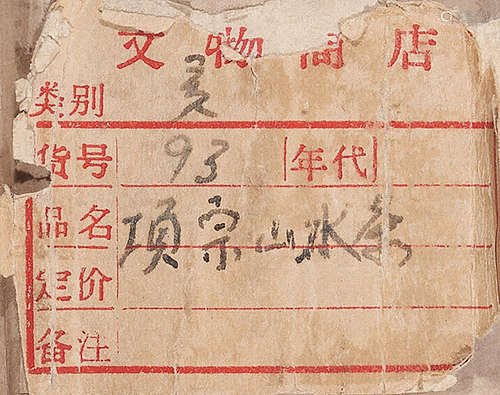 文物商店
类别
货号 93 年代
品名 项宗山水条
定价
备注